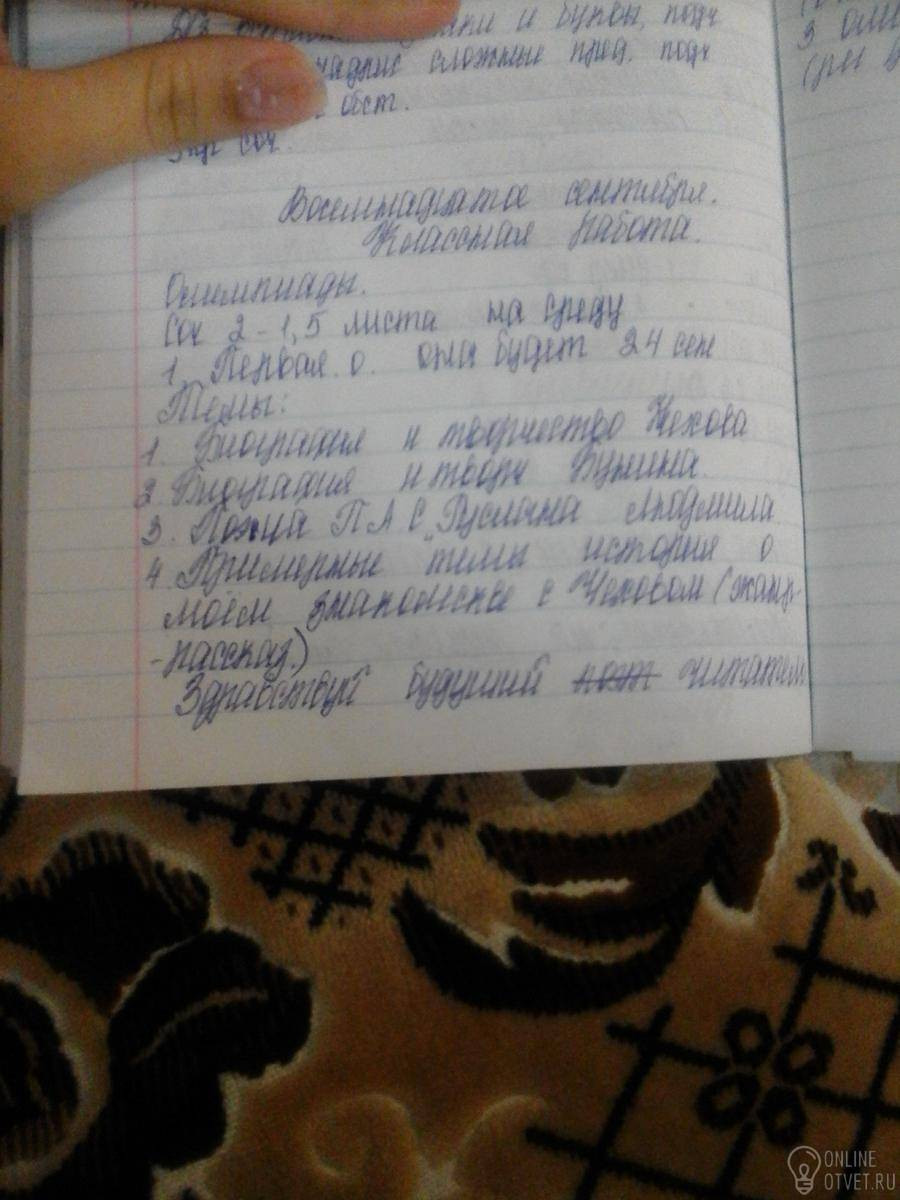 и буквы, подч
сложные пред. подч
обст.
соч.
Восемнадцатое сентября.
Классная работа.
Олимпиады.
Соч 2-1,5 листа на среду
1. Первая о. она будет 24 сен
Темы:
1. Биография и творчество Чехова
2. Биография и творч Бунина.
3. Поэма П А С „Руслан и Людмила
4. Примерные темы история о
моём знакомстве с Чеховом (жанр-
-рассказ.)
Здравствуй будущий поэт читатель
3 оли
ONLINE
OTVET.RU